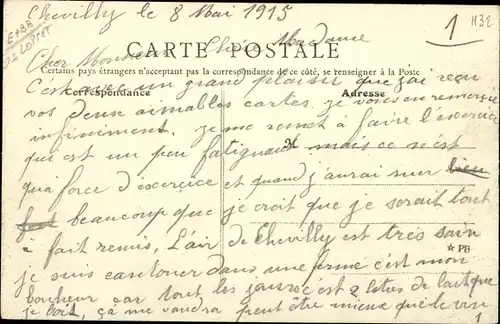 Chevilly le 8 Mai 1915
1
1132
E+88
D1 Loiret
Cher Monsieur Chère Madame
CARTE POSTALE
Certains pays étrangers n'acceptant pas la correspondance de ce côté, se renseigner à la Poste
Correspondance
Adresse
C'est avec un grand plaisir que j'ai reçu
vos deux aimables cartes je vous en remercie
infiniment. je me remet à faire l'exercice
M
qui est un peu fatiguant mais ce n'est
qua force d'exercice et quand j'aurai suer bien
beaucoup que je croit que je serait tout
à fait remis, L'air de Chevilly est très sain
★ PB
je suis cantoner dans une ferme c'est mon
bonheur car tout les jours c'est 2 litres de lait que
je boit, ça me vaudra peut être mieux que le vin
1